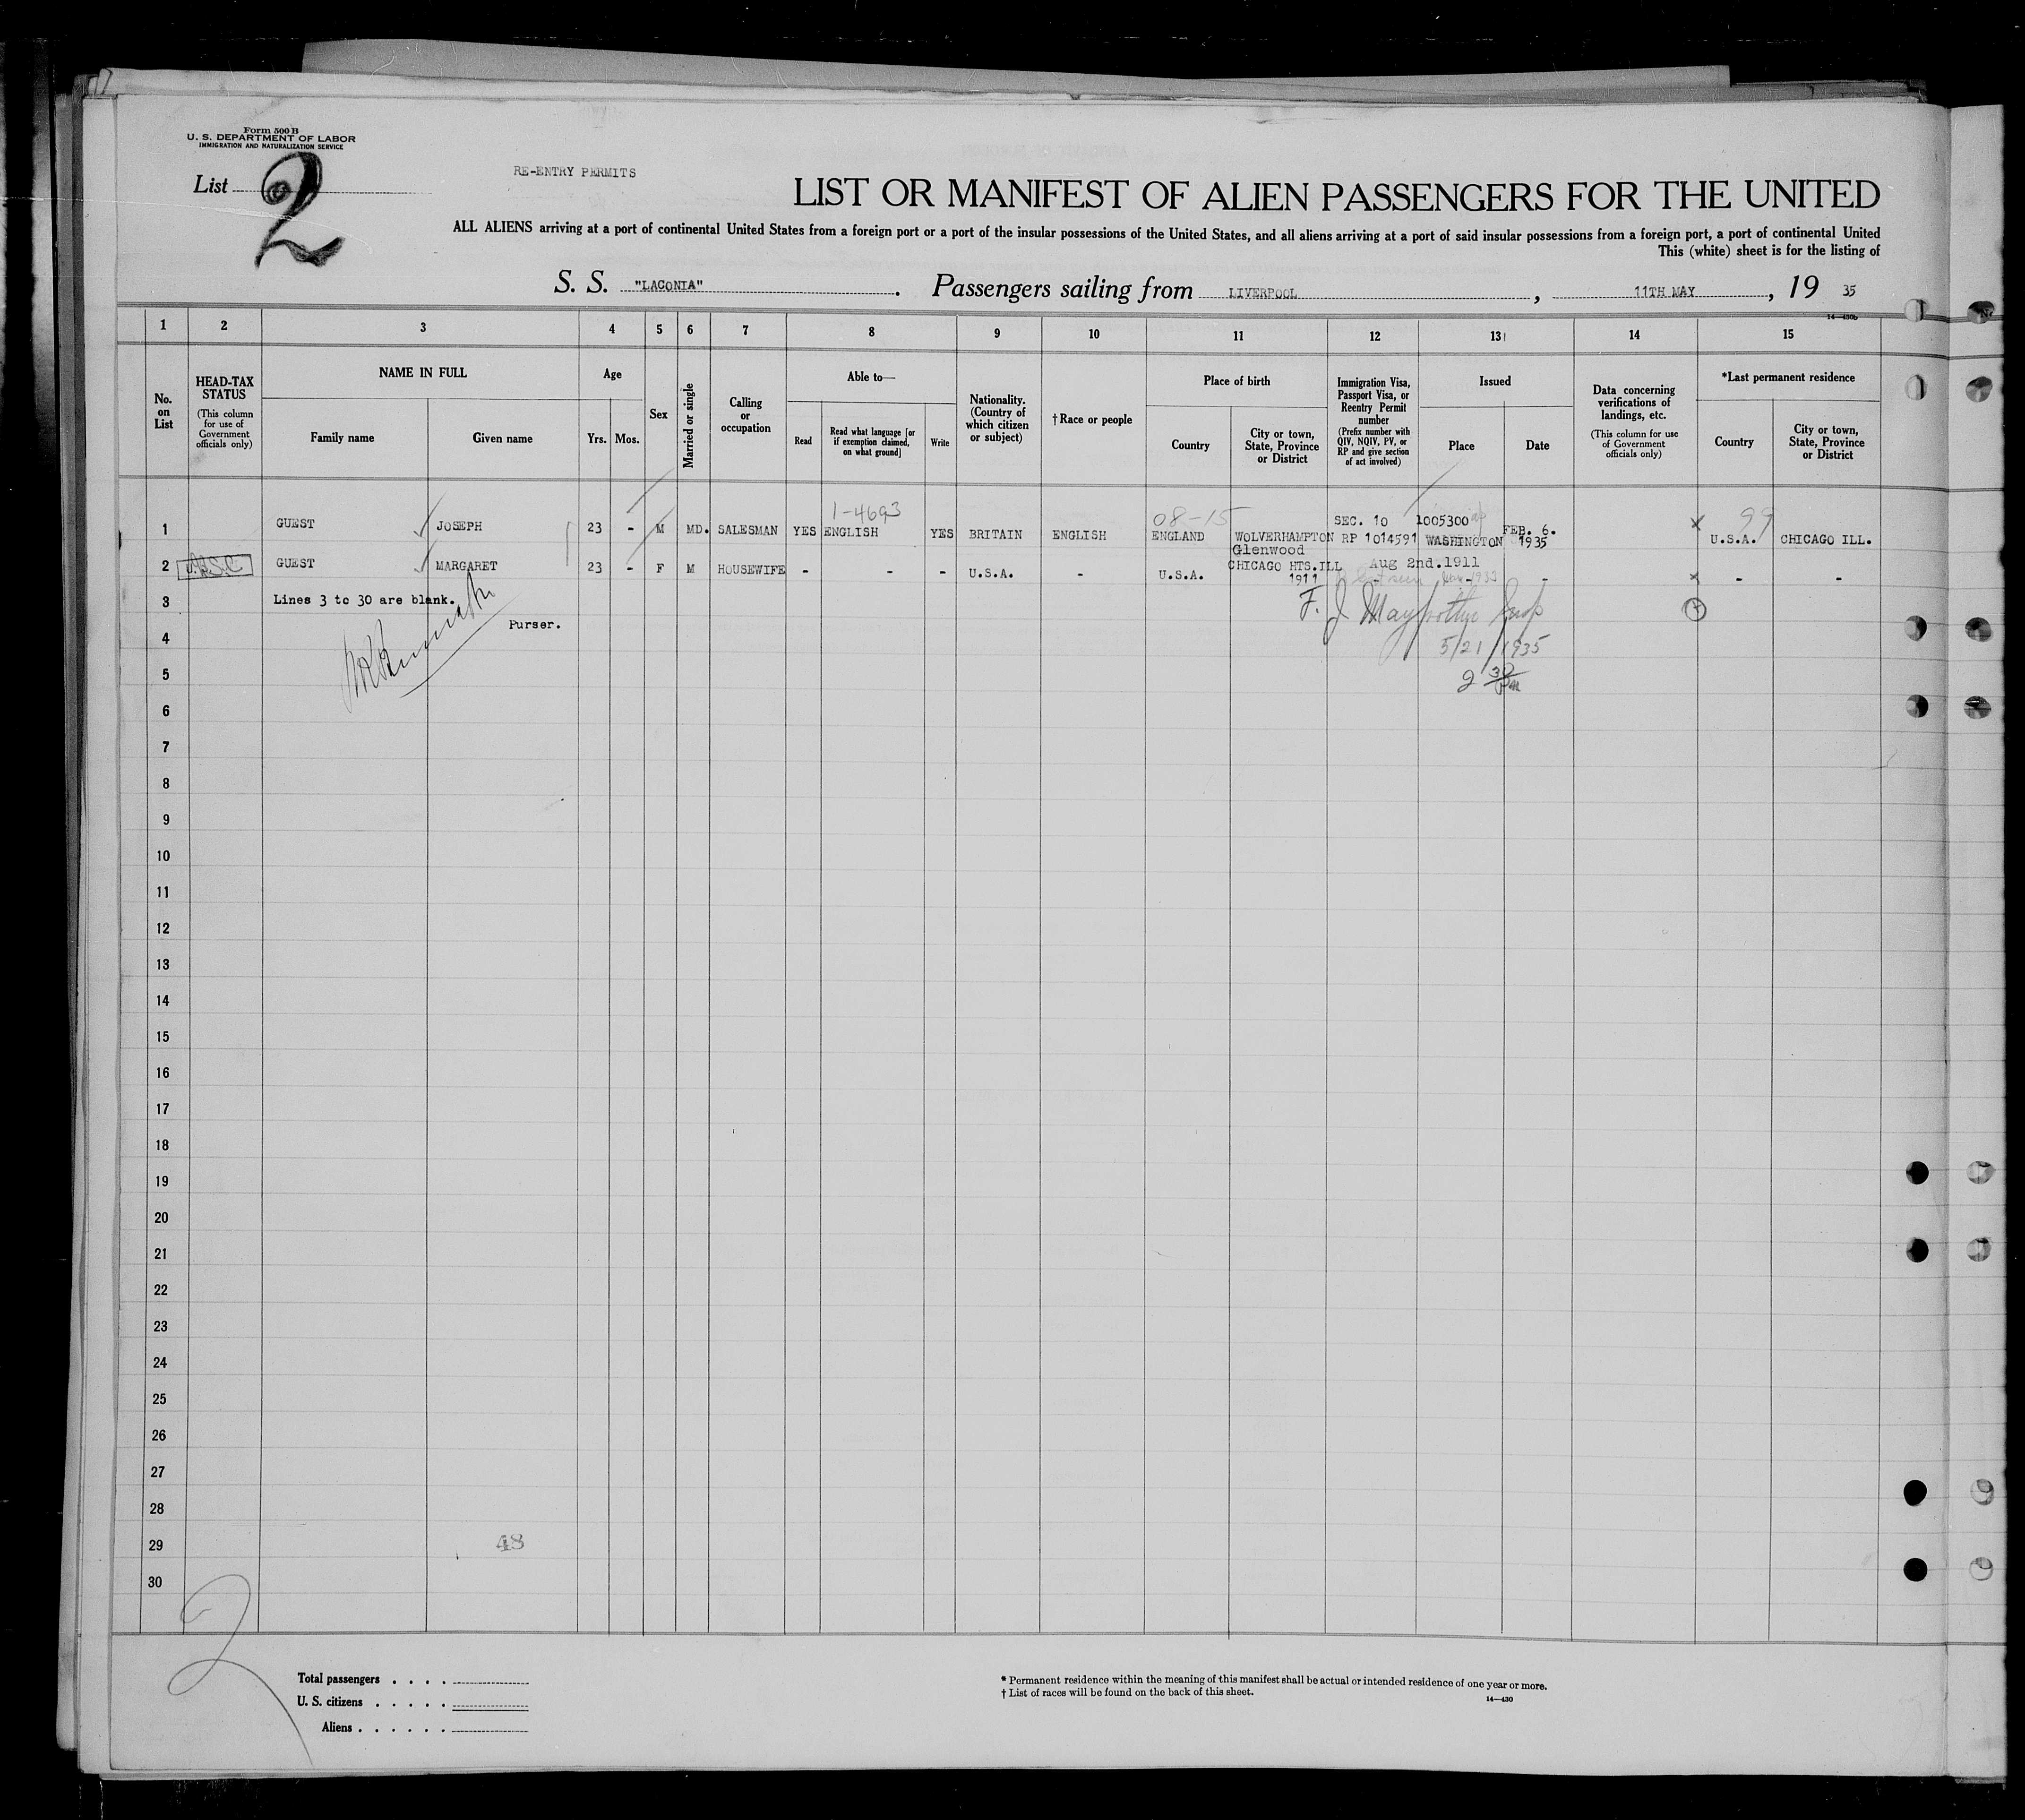 Form 500 B
U. S. DEPARTMENT OF LABOR
IMMIGRATION AND NATURALIZATION SERVICE
List 2
RE-ENTRY PERMITS
LIST OR MANIFEST OF ALIEN PASSENGERS FOR THE UNITED
ALL ALIENS arriving at a port of continental United States from a foreign port or a port of the insular possessions of the United States, and all aliens arriving at a port of said insular possessions from a foreign port, a port of continental United
This (white) sheet is for the listing of
S. S. "LACONIA". Passengers sailing from LIVERPOOL, 11TH MAY, 19 35
14—430b
1 2 3 4 5 6 7 8 9 10 11 12 13 14 15
No. on List
HEAD-TAX STATUS
(This column for use of Government officials only)
NAME IN FULL
Family name
Given name
Age
Yrs. Mos.
Sex
Married or single
Calling or occupation
Able to—
Read
Read what language [or if exemption claimed, on what ground]
Write
Nationality. (Country of which citizen or subject)
† Race or people
Place of birth
Country
City or town, State, Province or District
Immigration Visa, Passport Visa, or Reentry Permit number
(Prefix number with QIV, NQIV, PV, or RP and give section of act involved)
Issued
Place
Date
Data concerning verifications of landings, etc.
(This column for use of Government officials only)
*Last permanent residence
Country
City or town, State, Province or District
1-4693 08-15 SEC. 10 1005300 99
1 GUEST JOSEPH 23 - M MD. SALESMAN YES ENGLISH YES BRITAIN ENGLISH ENGLAND WOLVERHAMPTON RP 1014591 WASHINGTON FEB. 6. 1935 x U.S.A. CHICAGO ILL.
Glenwood
2 U.S.C GUEST MARGARET 23 - F M HOUSEWIFE - - - U.S.A. - U.S.A. CHICAGO HTS. ILL Aug 2nd. 1911 x - -
1911 - - -
3 Lines 3 to 30 are blank.
F. J Insp
4 Purser.
5/21/1935
5
2 30 PM
6
7
8
9
10
11
12
13
14
15
16
17
18
19
20
21
22
23
24
25
26
27
28
29 48
30
2
Total passengers . . . .
U. S. citizens . . . . .
Aliens . . . . . .
* Permanent residence within the meaning of this manifest shall be actual or intended residence of one year or more.
† List of races will be found on the back of this sheet.
14—430